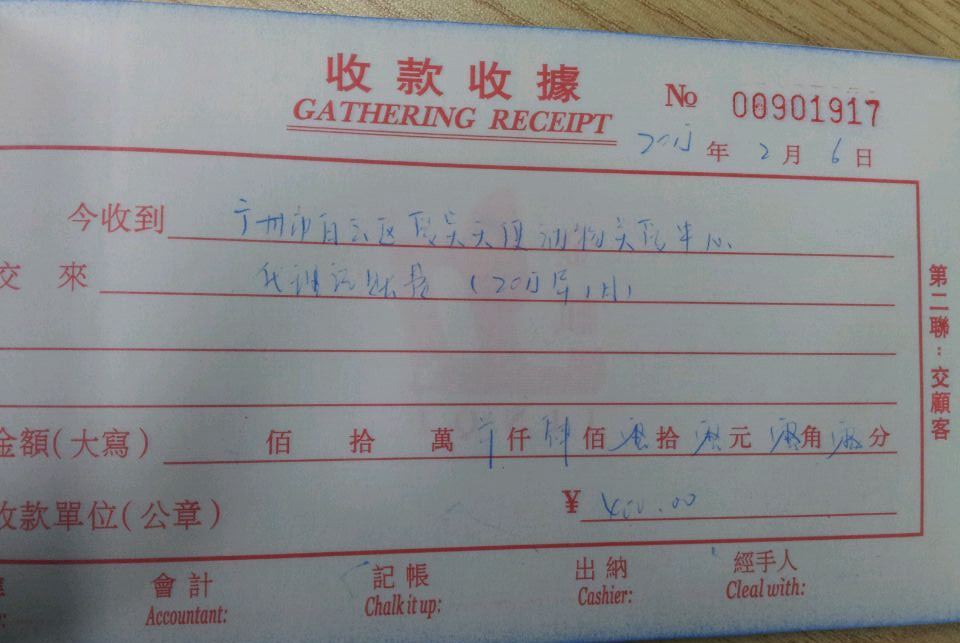 收款收據
GATHERING RECEIPT
№ 00901917
2015年2月6日
今收到 广州市白云区 天 动物 中心
交來 代理记账费(2015年1月)
金額(大寫) 佰 拾 萬 仟肆佰零拾零元零角零分
收款單位(公章) ¥ 400.00
會計 記帳 出納 經手人
Accountant: Chalk it up: Cashier: Cleal with:
第二聯:交顧客